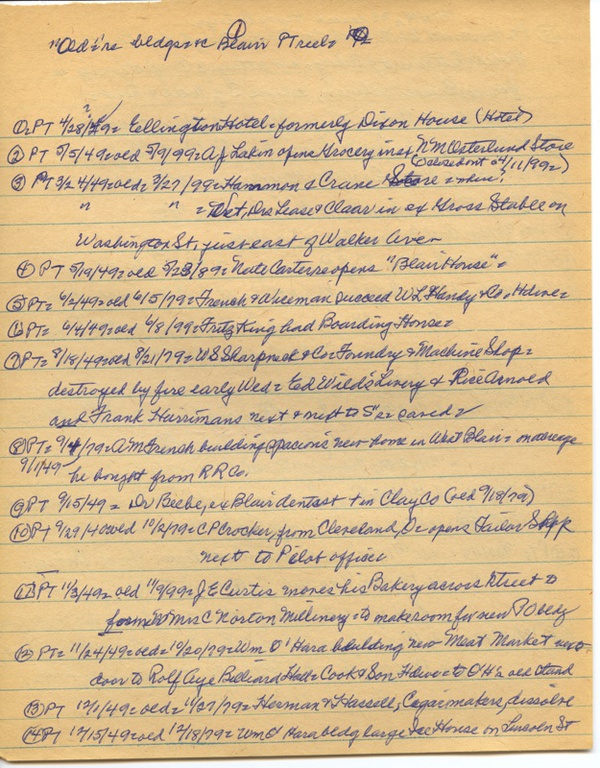 "Old" re bldgs &c Blair Street
① PT 4/28/49 = Ellington Hotel = formerly Dixon House (Hotel)
② PT 5/5/49 = old 5/9/99 = A J Lakin opens Grocery in ex N M Osterlund Store
(Closed out o 4/11/99 =)
③ PT 3/24/49 = old = 3/27/99 = Hammon & Crane Store = where?
" " = Vet. Drs Lease & Claar in ex Gross Stable on
Washington St, just east of Walker Ave =
④ PT 5/19/49 = old 5/23/89 = Nate Carter reopens "Blair House" =
⑤ PT = 6/2/49 = old 6/5/79 = French & Wiseman succeed W L Handy & Co = Hdwe =
⑥ PT = 6/4/49 = old 6/8/99 = Fritz King had Boarding House =
⑦ PT = 8/18/49 = old 8/21/79 = W S Sharpneck & Co = Foundry & Machine Shop =
destroyed by fire early Wed = Ed Wilds Livery & Rice Arnold
and Frank Harrimans next & next to S = saved =
⑧ PT = 9/4/79 = A M French building spacious new home in West Blair = on acreage
9/1/49
he bought from R R Co.
⑨ PT 9/15/49 = Dr Beebe, ex Blair dentist + in Clay Co (old 9/18/79)
⑩ PT 9/29/49 old 10/2/79 = C P Crocker, from Cleveland, O = opens Tailor Shop
next to Pilot office
⑪ PT 11/3/49 = old 11/9/99 = J E Curtis moves his Bakery across street to
former Mrs C Norton Millinery = to make room for new P O bldg
⑫ PT = 11/24/49 = old = 10/20/79 = Wm O'Hara building new Meat Market next
door to Rolf Aye Billiard Hall = Cook & Son Hdwe = to O'H's old stand
⑬ PT 12/1/49 = old = 11/27/79 = Herman & Hassell, Cigar makers, dissolve
⑭ PT 12/15/49 = old 12/18/79 = Wm O'Hara bldg large Ice House on Lincoln St